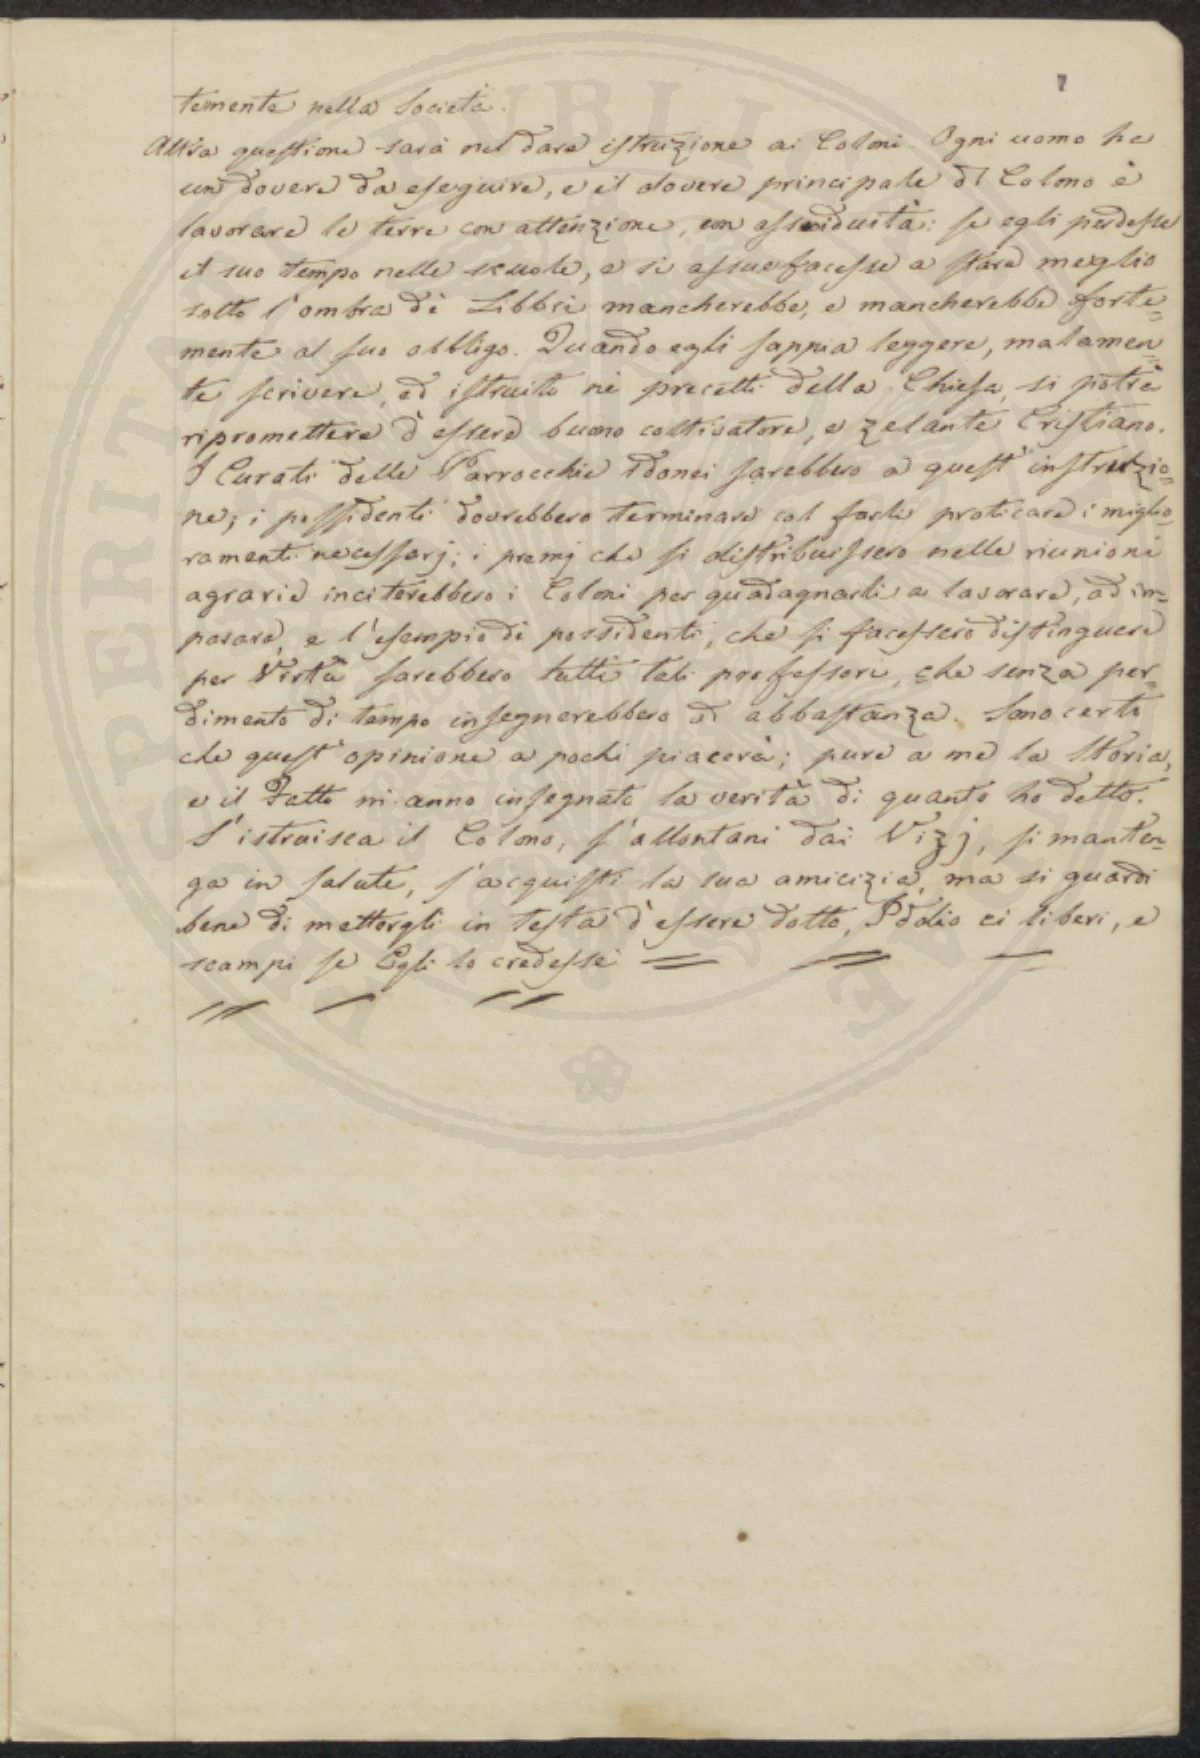 7
temente nella Società.
Altra questione sarà nel dare istruzione ai Coloni. Ogni uomo ha
un dovere da eseguire, e il dovere principale dl Colono è
lavorare le terre con attenzione, con assiduità: se egli perdesse
il suo tempo nelle scuole, e si assuefacesse a stare meglio
sotto l'ombra dè Libbri mancherebbe, e mancherebbe forte=
mente al suo obbligo. Quando egli sappia leggere, malamen=
te scrivere, ed istruito nè precetti della Chiesa, si potrà
ripromettere d'essere buono coltivatore, e zelante Cristiano.
I Curati delle Parrocchie Idonei sarebbero a quest'instruzio=
ne; i possidenti dovrebbero terminare col farli praticare i miglio=
ramenti necessarj; i premj che si distribuissero nelle riunioni
agrarie inciterebbero i Coloni per guadagnarli a lavorare, ad im=
parare, e l'esempio di possidenti, che si facessero distinguere
per Virtù sarebbero tutti tali professori, che senza per=
dimento di tempo insegnerebbero ad abbastanza. Sono certo
che quest'opinione a pochi piacerà; pure a me la Storia,
e il Fatto mi anno insegnato la verità di quanto ho detto.
S'istruisca il Colono, s'allontani dai Vizj, si manten=
ga in salute, s'acquisti la sua amicizia, ma si guardi
bene di mettergli in testa d'essere dotto, Iddio ci liberi, e
scampi se Egli lo credesse
PROSPERITATI PUBLICAE AUGENDAE